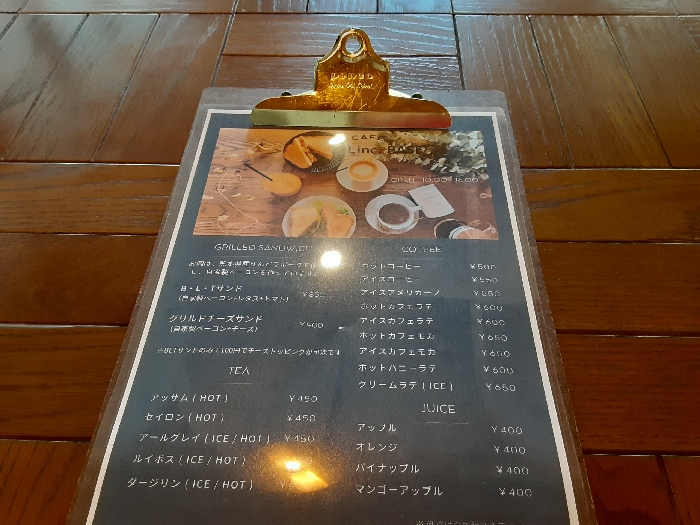 CAFE
Line BASE
OPEN 10:00-16:00
GRILLED SANDWICH
COFFEE
し、自家製ベーコンを作っています。
B・L・Tサンド
(自家製ベーコン+レタス+トマト)
グリルドチーズサンド ¥900
(自家製ベーコン+チーズ)
※BLTサンドのみ+100円でチーズトッピングが可能です
ホットコーヒー ¥500
アイスコーヒー ¥550
アイスアメリカーノ ¥550
ホットカフェラテ ¥600
アイスカフェラテ ¥600
ホットカフェモカ ¥650
アイスカフェモカ
ホットハニーラテ ¥600
クリームラテ ( ICE ) ¥650
TEA
アッサム ( HOT ) ¥450
セイロン ( HOT ) ¥450
アールグレイ ( ICE / HOT ) ¥450
ルイボス ( ICE / HOT )
ダージリン ( ICE / HOT )
JUICE
アップル ¥400
オレンジ ¥400
パイナップル ¥400
マンゴーアップル ¥400